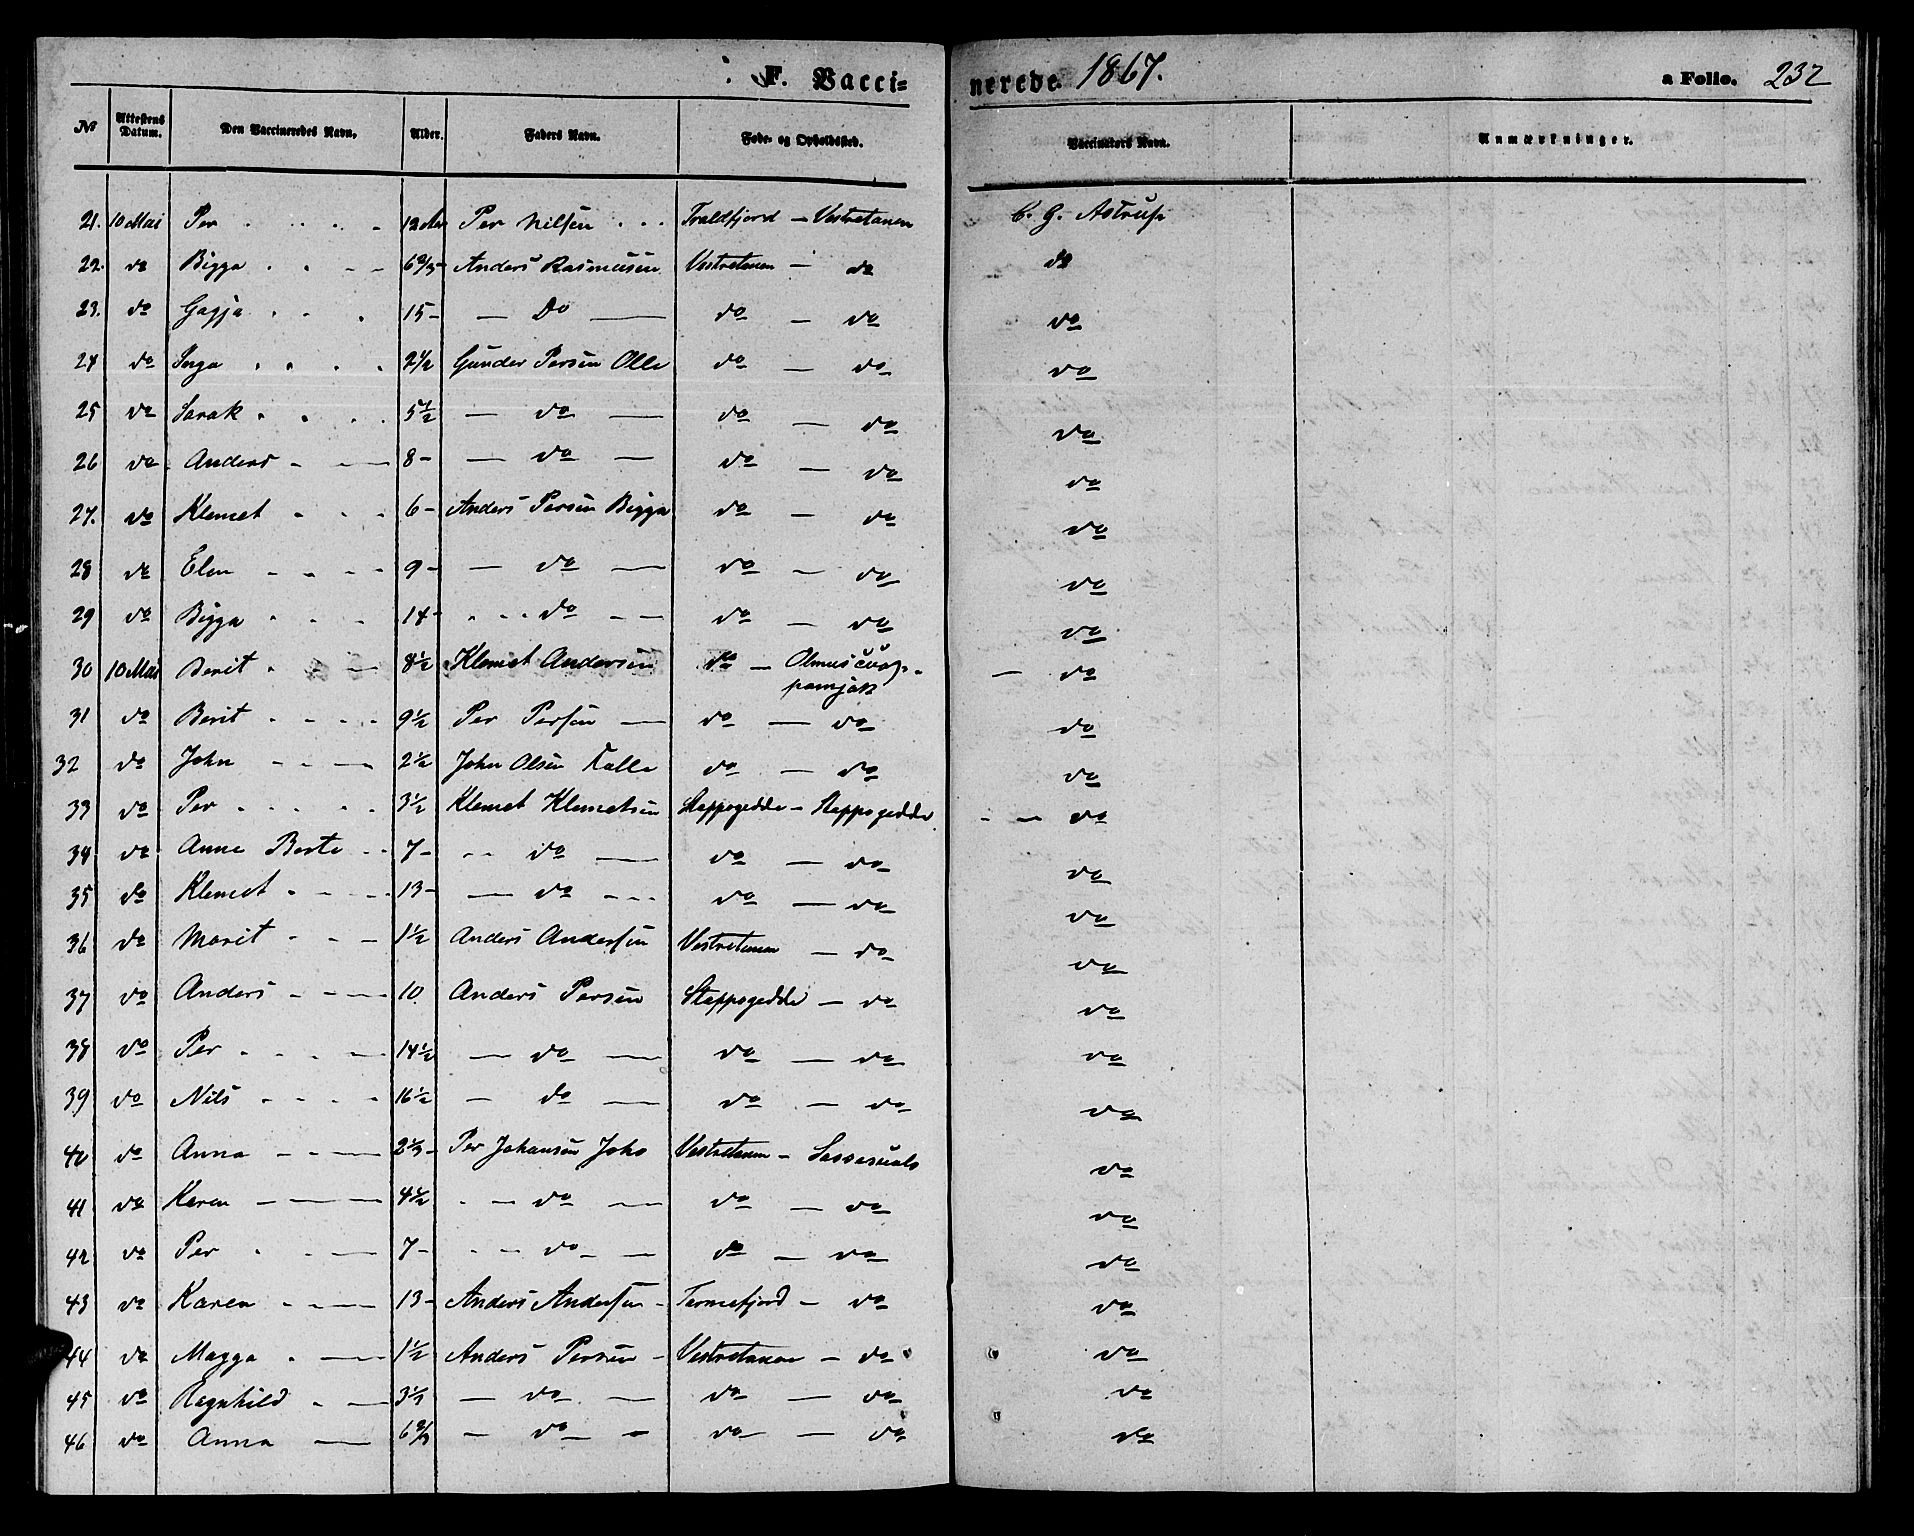 F. Vacci=
nerede 1867.
a Folio. 232
No Attestens Datum. Den Vaccineredes Navn. Alder. Faders Navn. Føde- og Opholdssted. Vaccinators Navn. Anmærkninger.
21. 10 Mai Per 12 Aar Per Nilsen Traldfjord - Vestretanen C. G. Astrup
22. do Bigga 6 2/3 - Anders Rasmusen Vestretanen - do do
23. do Gagja 15 - Do do - do do
24 do Inga 2 1/2 Gunder Persen Olle do - do do
25 do Sarak 5 1/2 do do - do do
26 do Anders 8 - do do - do do
27. do Klemet 6 - Anders Persen Bigga do - do do
28 do Elen 9 - do do - do do
29 do Bigga 14 - do do - do do
30 10 Mai Berit 8 1/2 Klemet Andersen do - do
31 do Berit 9 1/2 Per Persen do - do do
32 do John 2 1/2 John Olsen Kalle do - do do
33 do Per 3 1/2 Klemet Klemetsen Stappogedde - Stappogedde do
34 do Anne Berte 7 - do do - do do
35 do Klemet 13 - do do - do do
36 do Marit 1 1/2 Anders Andersen Vestretanen - do do
37 do Anders 10 Anders Persen Stappogedde - do do
38 do Per 14 1/2 do do - do do
39 do Nils 16 1/2 do do - do do
40 do Anna 2 1/3 - Per Johansen Joks Vestretanen - do
41 do Karen 4 1/2 do do - do do
42 do Per 7 - do do - do do
43 do Karen 13 - Anders Andersen Tarmefjord - do do
44 do Magga 1 1/2 Anders Persen Vestretanen - do do
45 do Ragnhild 3 1/2 do do - do do
46 do Anna 6 2/3 do do - do do